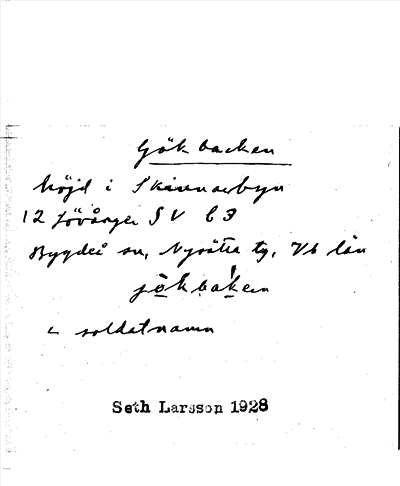 Gökbacken
höjd i Skinnarbyn
12 Lövånger SV C3
Bygdeå sn, Nysätra tg, Vb län
jökbaken
< soldatnamn
Seth Larsson 1928